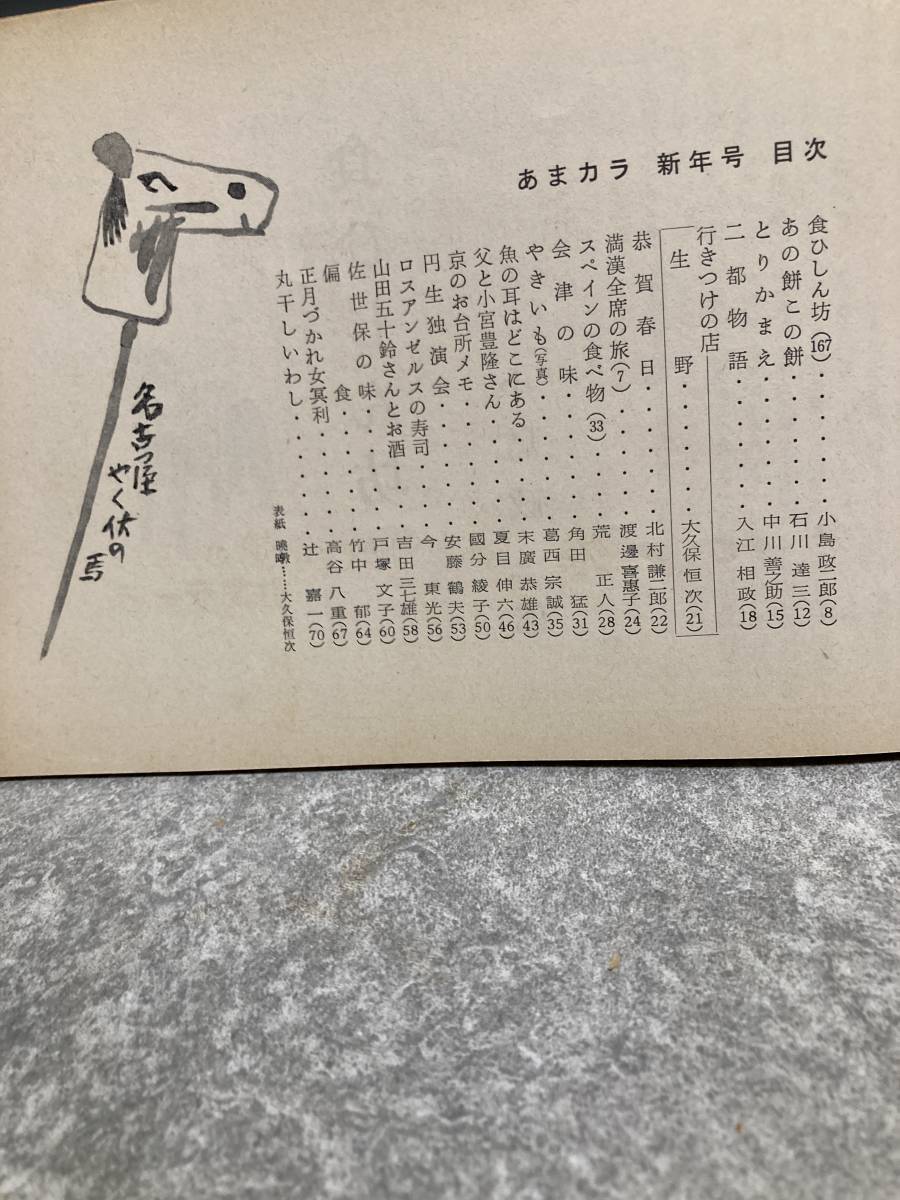 あまカラ 新年号 目次
食ひしん坊(167)・・・・・・・小島政二郎(8)
あの餅この餅・・・・・・・石川達三(12)
とりかまえ・・・・・・・中川善之助(15)
二都物語・・・・・・・入江相政(18)
行きつけの店
生野・・・・・・・大久保恒次(21)
恭賀春日・・・・・・・北村謙二郎(22)
満漢全席の旅(7)・・・・・・渡邊喜惠子(24)
スペインの食べ物(33)・・・・荒正人(28)
会津の味・・・・・・・角田猛(31)
やきいも(写真)・・・・・・葛西宗誠(35)
魚の耳はどこにある・・・・・末廣恭雄(43)
父と小宮豊隆さん・・・・・・夏目伸六(46)
京のお台所メモ・・・・・・國分綾子(50)
円生独演会・・・・・・・安藤鶴夫(53)
ロスアンゼルスの寿司・・・・今東光(56)
山田五十鈴さんとお酒・・・・吉田三七雄(58)
佐世保の味・・・・・・・戸塚文子(60)
偏食・・・・・・・竹中郁(64)
正月づかれ女冥利・・・・・高谷八重(67)
丸干しいわし・・・・・・・辻嘉一(70)
表紙 ……大久保恒次
名古屋
やく
の
馬